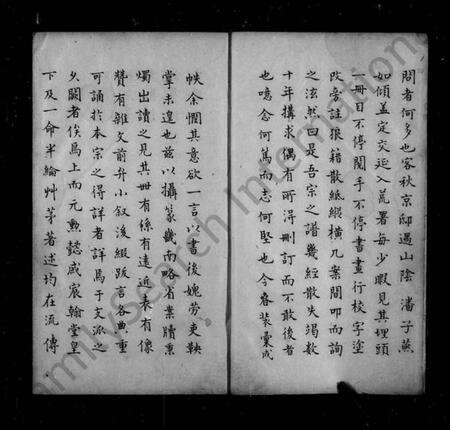 問者何多也客秋京邸遇山陰潘子蕉
如傾蓋定交延入荒署每少暇見其埋頭
一冊目不停閱手不停書畫行校字塗
改旁註狼籍散紙縱橫几案間叩而詢
之泫然曰是吾宗之譜幾經散失竭數
十年搆求偶有所得刪訂而不敢後者
也噫念何篤而志何堅也今春裝彙成
帙余憫其意欲一言以書後媿勞吏鞅
掌未遑也茲以攝篆畿南略省案牘熏
燭出讀之見其冊有係有遠近表有像
贊有雜文前弁小叙後綴跋言各曲重
可誦於本宗之得詳者詳焉于文派之
久闕者俟焉上而元勲懿戚宸翰堂皇
下及一命半綸艸茅著述均在流傳
FamilySearch International